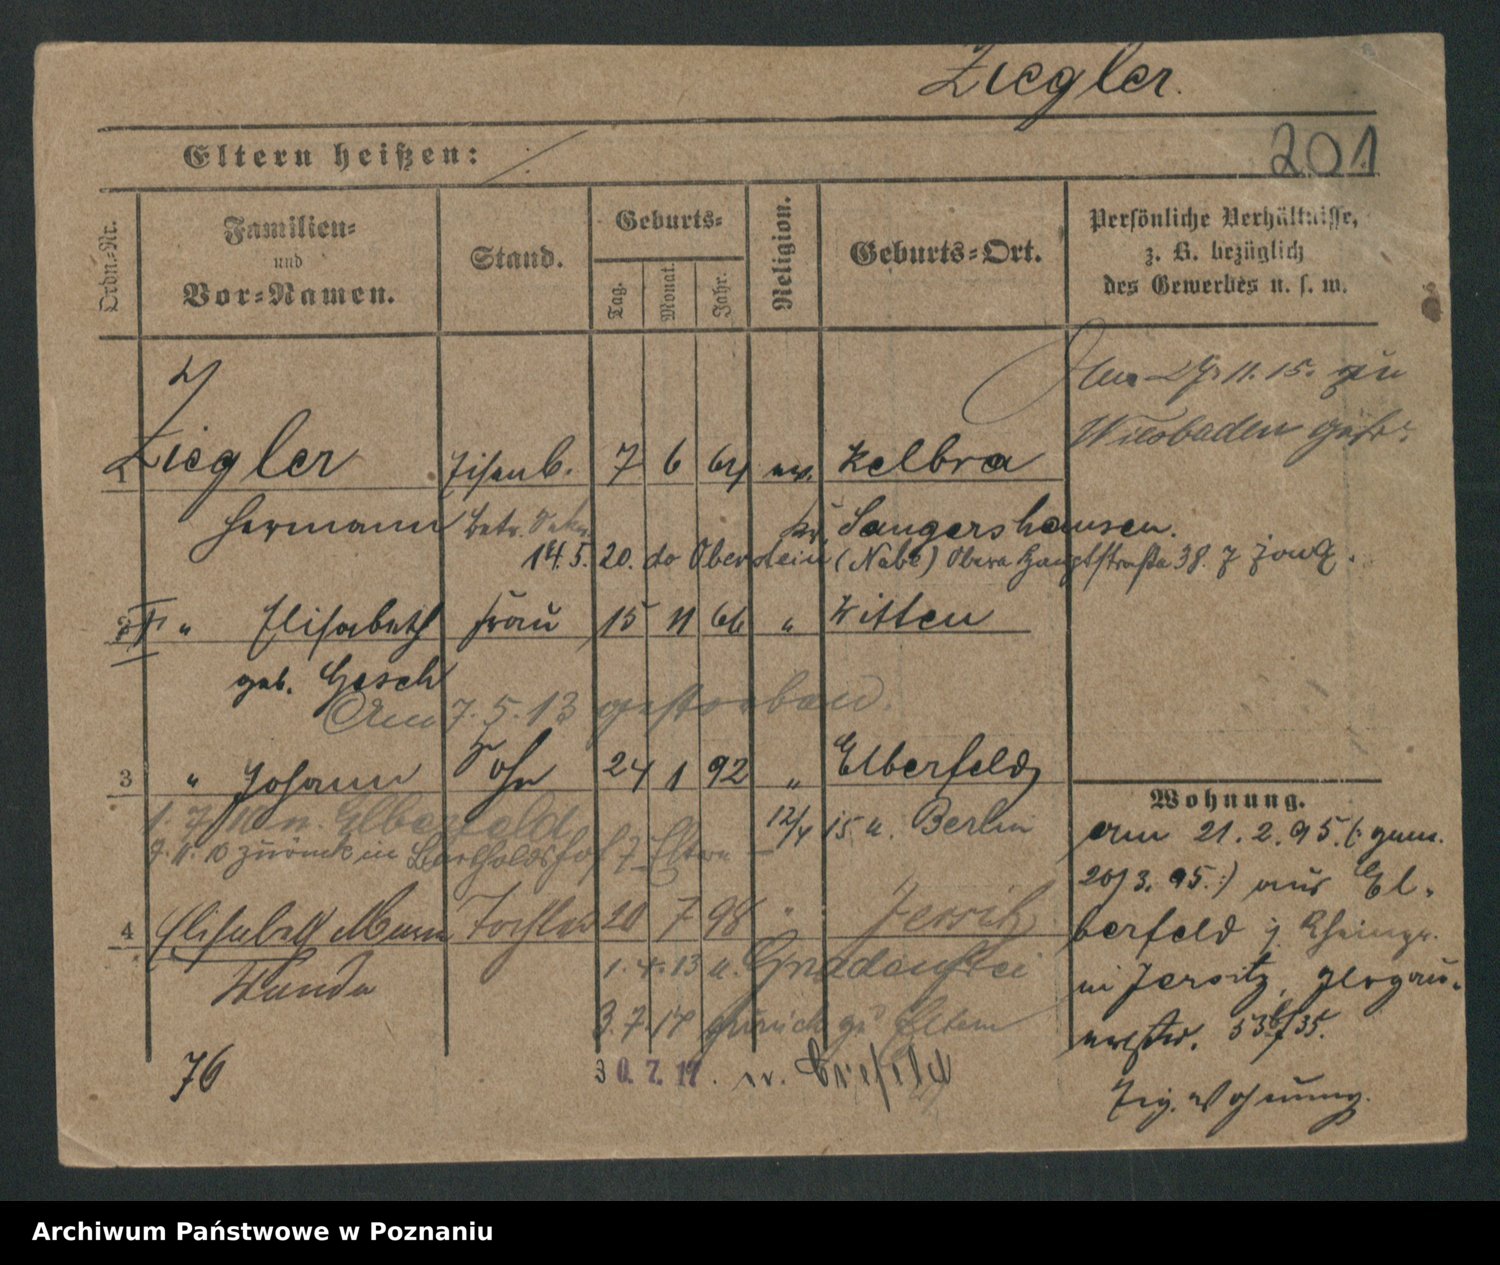 Ziegler.
Eltern heißen:
201
Ordn.-Nr.
Familien-
und
Vor-Namen.
Stand.
Geburts-
Tag.
Monat.
Jahr.
Religion.
Geburts-Ort.
Persönliche Verhältnisse,
z. B. bezüglich
des Gewerbes u. s. w.
11. 15. zu
Wiesbaden
1 Ziegler Eisenb. 7 6 64 ev. Kelbra
Hermann Betr. Kr. Sangershausen.
14.5.20. do Oberstein (Nahe) Obere Hauptstraße 38.
2 " Elisabeth Frau 15 11 66 " Witten
geb. Gesch
Am 7. 5. 13 gestorben.
3 " Johann Sohn 24 1 92 " Elberfeld
1. 7. n. Elberfeld 12/4 15 n. Berlin
zurück in Bartholdshof z. Eltern
4 Elisabeth Tochter 20 7 98 " Jersitz
Wanda
1. 4. 13 n. Gnadenfrei
3. 7. 14 zurück zu Eltern
30.7.17. n. Crefeld
76
Wohnung.
am 21. 2. 95. (: gem.
20/3. 95. :) aus El-
berfeld
in Jersitz, Glogau-
erstr. 53b/35.
Wohnung.
Archiwum Państwowe w Poznaniu